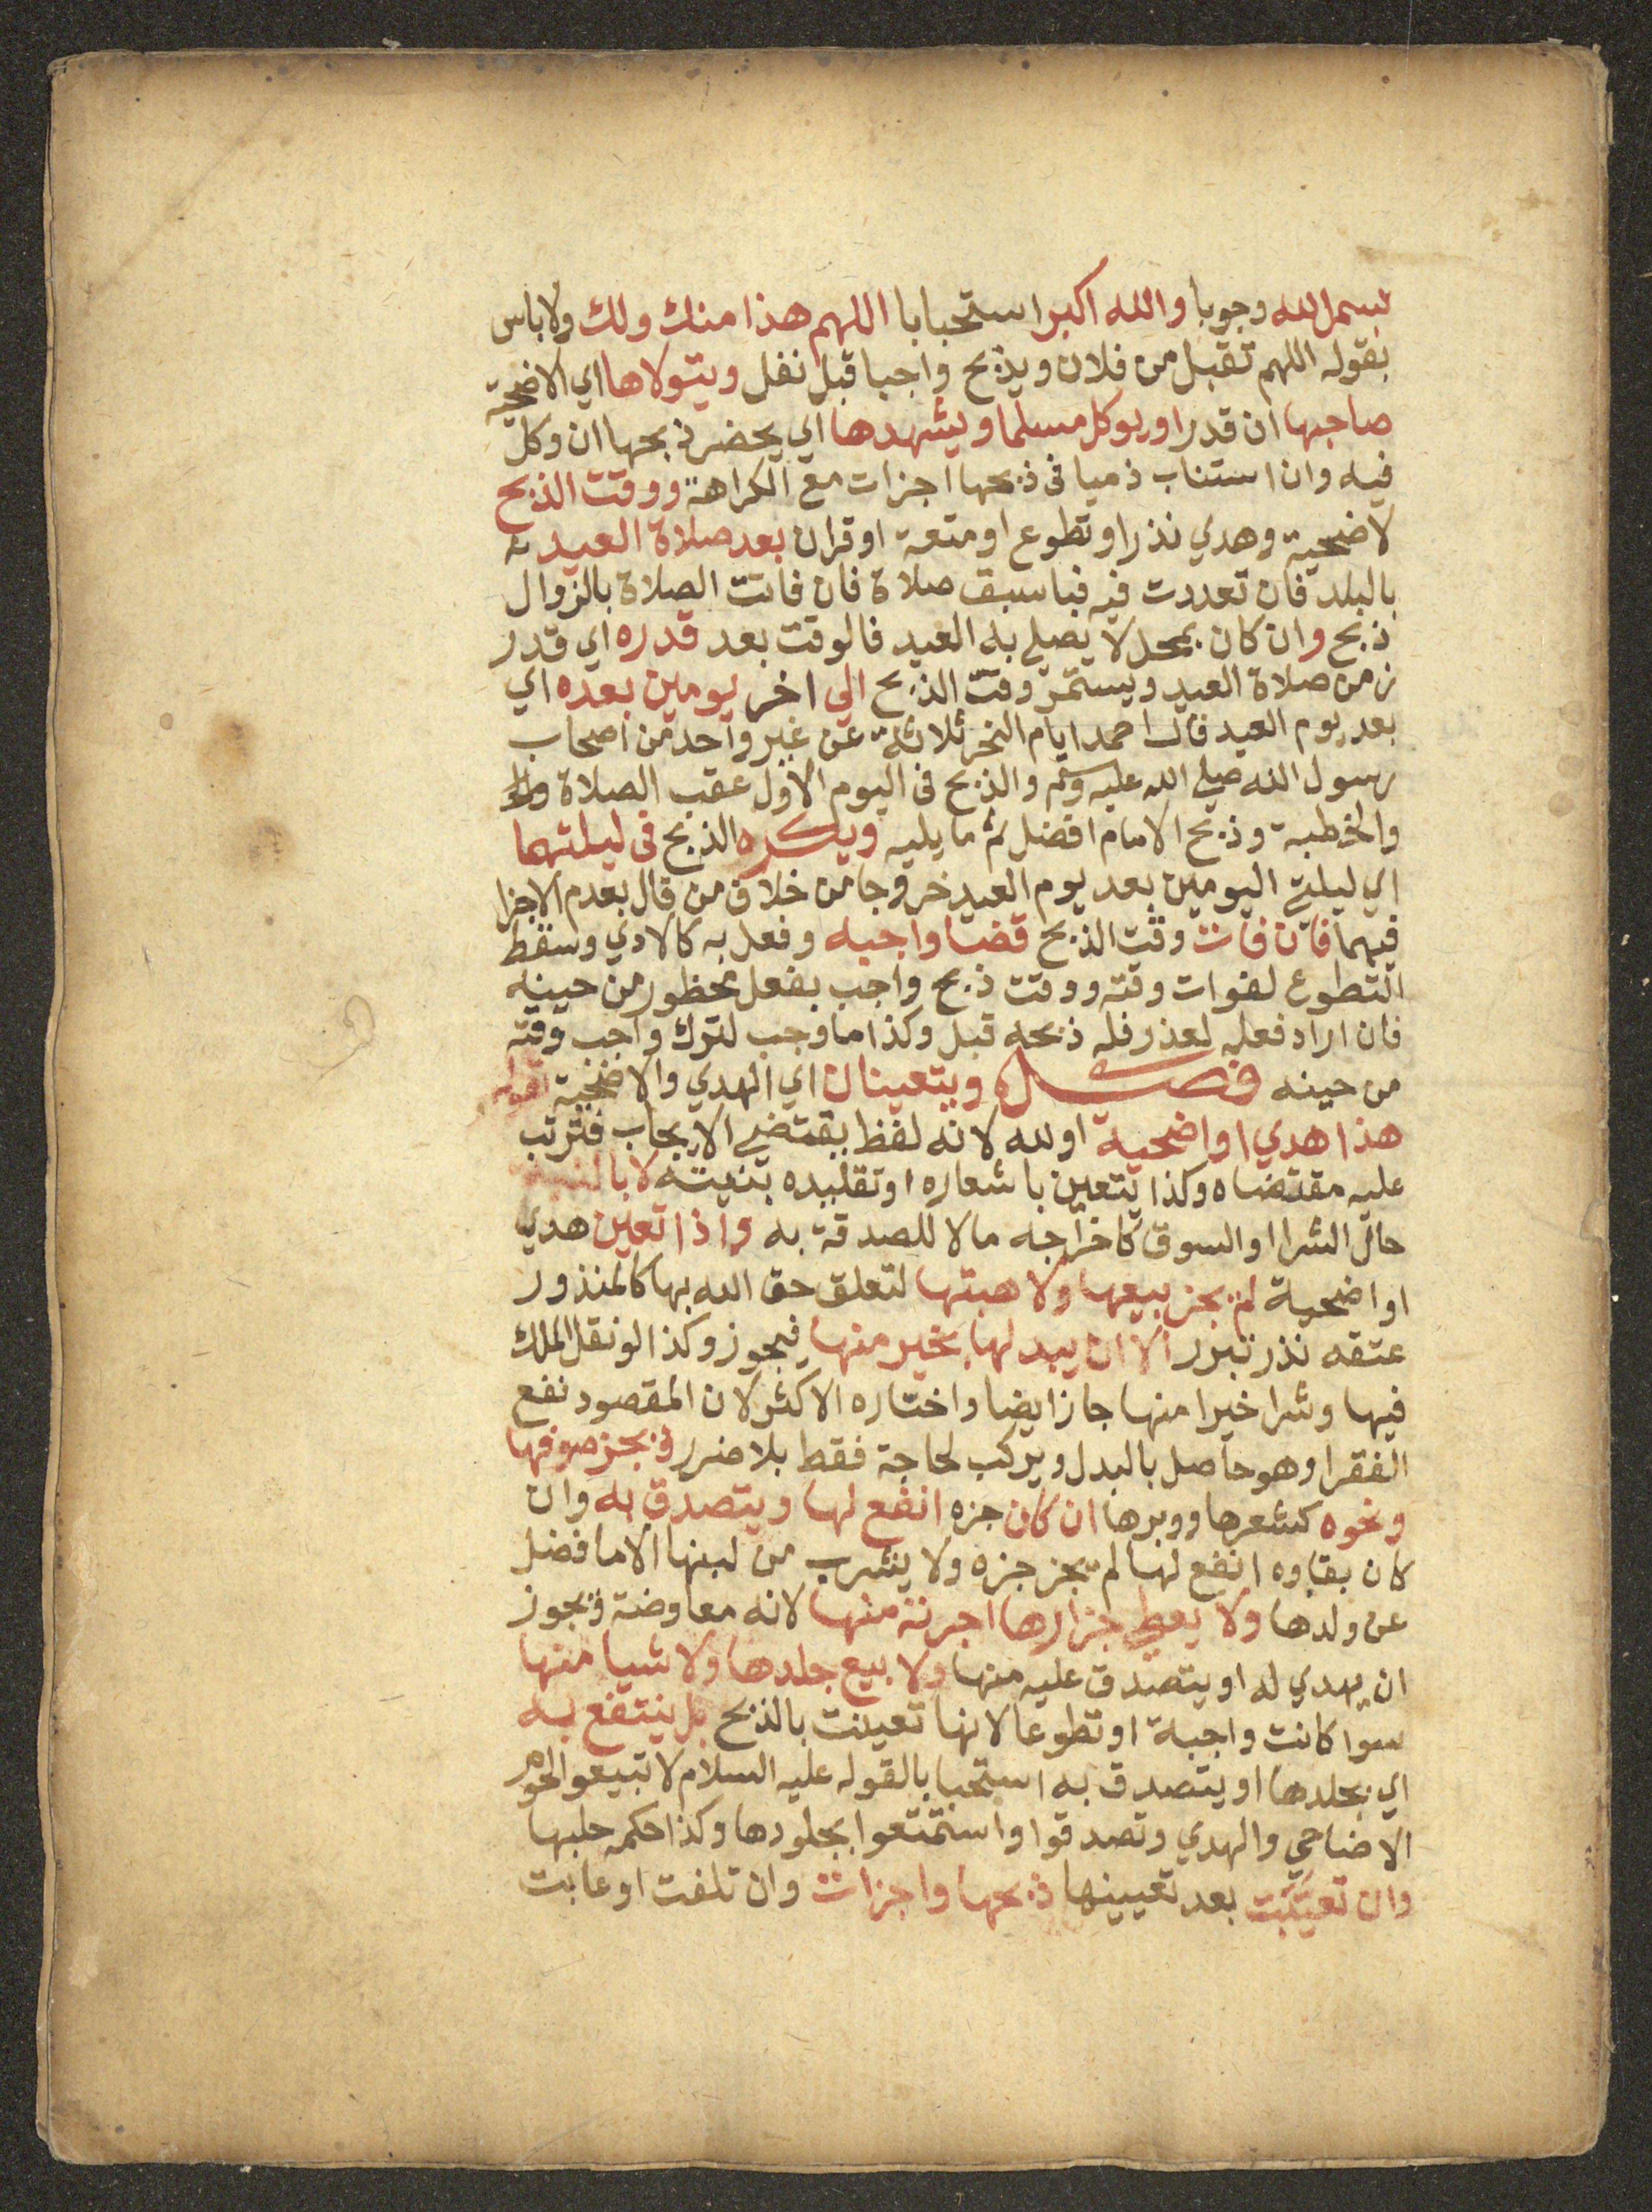 بسم الله وجوبا والله اكبر استحبابا اللهم هذا منك ولك ولا باس
بقوله اللهم تقبل من فلان ويذبح واجبا قبل نفل ويتولاها اي الاضحية
صاحبها ان قدر او يوكل مسلما ويشهدها اي يحضر ذبحها ان وكل
فيه وان استناب ذميا في ذبحها اجزات مع الكراهة ووقت الذبح
لاضحية وهدي نذر او تطوع او متعة او قران بعد صلاة العيد
بالبلد فان تعددت فيه فباسبق صلاة فان فاتت الصلاة بالزوال
ذبح وان كان بمحل لا يصلي به العيد فالوقت بعد قدره اي قدر
زمن صلاة العيد ويستمر وقت الذبح الي اخر يومين بعده اي
بعد يوم العيد قال احمد ايام النحر ثلاثة عن غير واحد من اصحاب
رسول الله صلي الله عليه وسلم والذبح في اليوم الاول عقب الصلاة
والخطبة وذبح الامام افضل ثم ما يليه ويكره الذبح في ليلتهما
اي ليلتي اليومين بعد يوم العيد خروجا من خلاف من قال بعدم الاجزا
فيهما فان فات وقت الذبح قضا واجبه وفعل به كالادي وسقط
التطوع لفوات وقته ووقت ذبح واجب بفعل محظور من حينه
فان اراد فعله لعذر فله ذبحه قبل وكذا ما وجب لترك واجب وقته
من حينه فصل ويتعينان اي الهدي والاضحية بقوله
هذا هدي او اضحية او لله لانه لفظ يقتضي الايجاب فترتب
عليه مقتضاه وكذا يتعين باشعاره او تقليده بنيته لا بالنية
حال الشرا او السوق كاخراجه مالا للصدقة به واذا تعين هدي
او اضحية لم يجز بيعها ولا هبتها لتعلق حق الله بها كالمنذور
عتقه نذر تبرر الا ان يبدلها بخير منها فيجوز وكذا لو نقل الملك
فيها وشرا خيرا منها جاز ايضا واختاره الاكثر لان المقصود نفع
الفقرا وهو حاصل بالبدل ويركب لحاجة فقط بلا ضرر ويجز صوفها
ونحوه كشعرها ووبرها ان كان جزه انفع لها ويتصدق به وان
كان بقاوه انفع لها لم يجز جزه ولا يشرب من لبنها الا ما فضل
عن ولدها ولا يعطي جزارها اجرته منها لانه معاوضة ويجوز
ان يهدي له او يتصدق عليه منها ولا بيع جلدها ولا شيا منها
سوا كانت واجبة او تطوعا لانها تعينت بالذبح بل ينتفع به
اي بجلدها او يتصدق به استحبابا لقوله عليه السلام لا تبيعوا لحوم
الاضاحي والهدي وتصدقوا واستمتعوا بجلودها وكذا حكم جلبها
وان تعيبت بعد تعيينها ذبحها واجزات وان تلفت او عابت